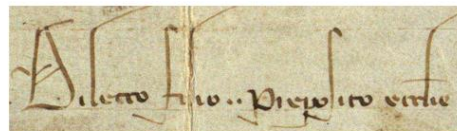 Dilecto filio .. Preposito eccl̄ie